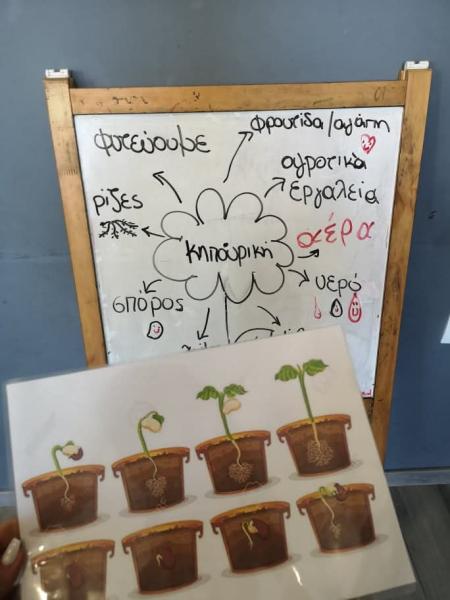 φυτεύουμε
φροντίδα/αγάπη
αγροτικά
εργαλεία
ρίζες
κηπουρική
αέρα
νερό
σπόρος